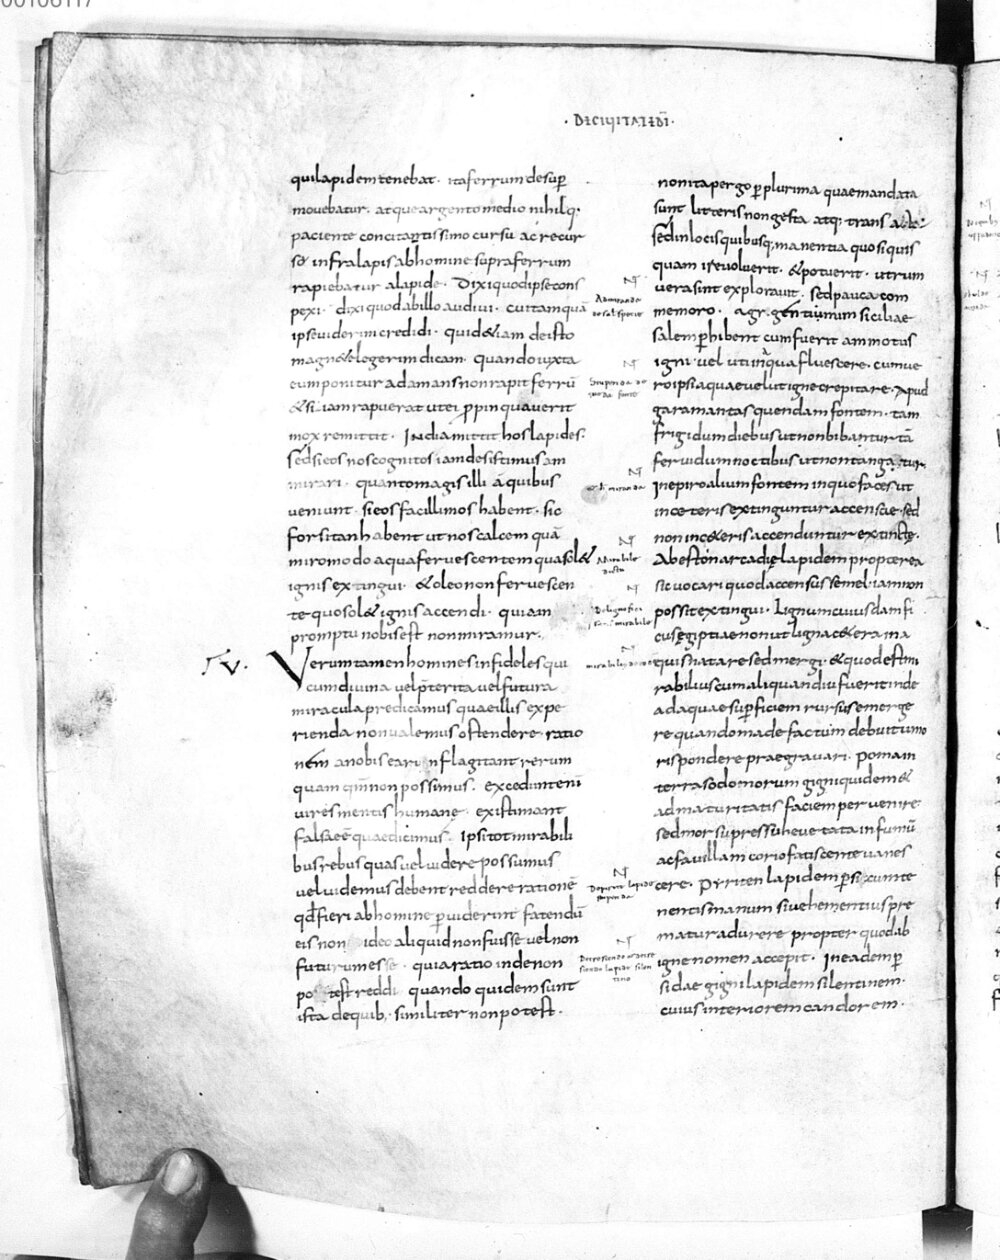 00106117
· DECIVITATEDĪ ·
qui lapidem tenebat · ita ferrum desup̄
mouebatur · atque argento medio nihilq;
paciente concitatissimo cursu ac recur
s& infra lapis ab homine supra ferrum
rapiebatur a lapide · Dixi quod ipse cons
pexi · dixi quod ab illo audiui · cui tamquā
ipse uiderim credidi · quid &iam de isto
magn&e legerim dicam · quando iuxta
eum ponitur adamans non rapit ferrū
& si iam rapuerat ut ei p̱pinquauerit
mox remittit · India mittit hos lapides ·
sed si eos nos cognitos iam desistimus am
mirari · quanto magis illi a quibus
ueniunt · si eos facillimos habent · sic
forsitan habent ut nos calcem quā
miro modo aqua feruescentem qua sol&
ignis extingui · & oleo non feruescen
te quo sol& ignis accendi · quia in
promptu nobis est non miramur ·
V · Verum tamen homines infideles qui
cum diuina uel p̄terita uel futura
miracula predicamus quae illis expe
rienda non ualemus ostendere · ratio
nem a nobis earum flagitant rerum
quam qm̄ non possumus · excedunt enī
uires mentis humane · existimant
falsa eē quae dicimus · Ipsi tot mirabili
bus rebus quas uel uidere possumus
uel uidemus debent reddere rationē
qđ fieri ab homine p̱uiderint fatendū
eis non ideo aliquid non fuisse uel non
futurum esse · quia ratio inde non
potest reddi · quando quidem sunt
ista de quib; similiter non potest ·
non ita pergo p̱ plurima quae mandata
sunt litteris non gesta atq; trans acta ·
sed in locis quibusq; manentia quo si quis
quam ire uoluerit · & potuerit · utrum
uera sint explorauit · sed pauca com
memoro · agrigentinum siciliae
salem p̱hibent cum fuerit ammotus
igni · uel ut in aqua fluescere · cum ue
ro ipsi aquae uelut igne crepitare · Apud
garamantas quendam fontem · tam
frigidum diebus ut non bibantur tā
feruidum noctibus ut non tangatur ·
In epiro alium fontem in quo faces ut
in ceteris extinguntur accensae · sed
non in c&eris accenduntur extincte ·
Abeston arcadię lapidem propterea
sic uocari quod accensus semel iam non
possit extingui · Lignum cuiusdam fi
cus ęgiptiae non ut ligna c&era in a
quis natare sed mergi · & quod est mi
rabilius cum aliquandiu fuerit inde
ad aquae sup̱ficiem rursus emerge
re quando madefactum debuit umo
ris pondere praegrauari · Poma in
terra sodomorum gigni quidem &
ad maturitatis faciem peruenire
sed morsu pressuue temtata in fumū
ac fauillam corio fatiscente uanes
cere · Pyriten lapidem p̱sicum te
nentis manum si uehementius pre
matur adurere propter quod ab
igne nomen accepit · In eadem p̱
side gigni lapidem silentinem ·
cuius interiorem candorem ·